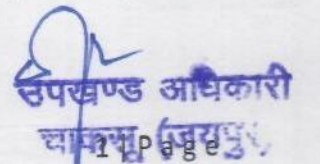 उपखण्ड अधिकारी
चाकसू (जयपुर)
1 | Page